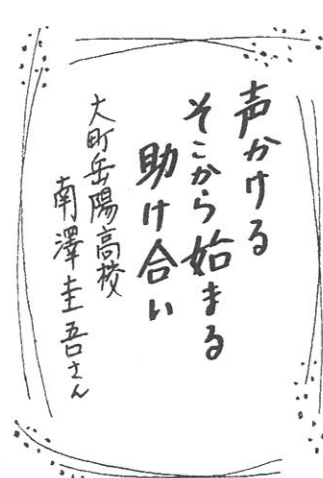 声かける
そこから始まる
助け合い
大町岳陽高校
南澤圭吾さん